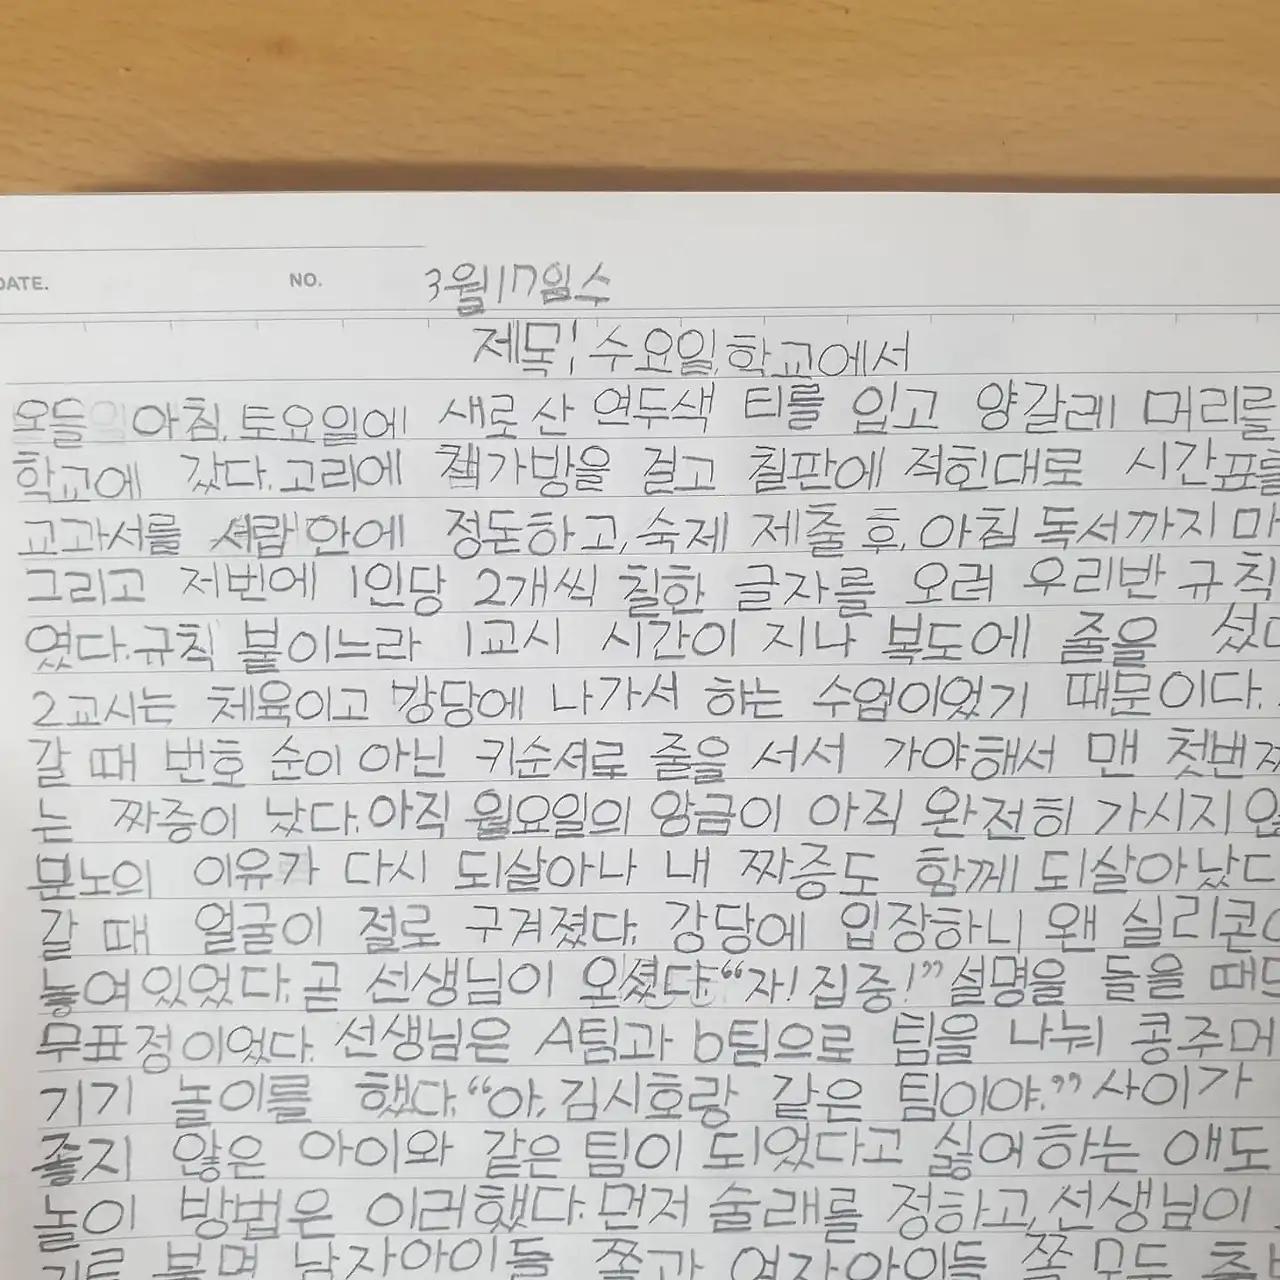 DATE. NO. 3월17일수
제목; 수요일, 학교에서
오늘 아침, 토요일에 새로 산 연두색 티를 입고 양갈레 머리를
학교에 갔다. 고리에 책가방을 걸고 칠판에 적힌대로 시간표를
교과서를 서랍 안에 정돈하고, 숙제 제출 후, 아침 독서까지 마
그리고 저번에 1인당 2개씩 칠한 글자를 오려 우리반 규칙
였다. 규칙 붙이느라 1교시 시간이 지나 복도에 줄을 섰다
2교시는 체육이고 강당에 나가서 하는 수업이었기 때문이다.
갈 때 번호 순이 아닌 키순서로 줄을 서서 가야해서 맨 첫번째
는 짜증이 났다. 아직 월요일의 앙금이 아직 완전히 가시지 않
분노의 이유가 다시 되살아나 내 짜증도 함께 되살아났다
갈 때 얼굴이 절로 구겨졌다. 강당에 입장하니 왠 실리콘
놓여있었다. 곧 선생님이 오셨다. “자! 집중!” 설명을 들을 때도
무표정이었다. 선생님은 A팀과 b팀으로 팀을 나눠 콩주머
기기 놀이를 했다. “아, 김시호랑 같은 팀이야.” 사이가
좋지 않은 아이와 같은 팀이 되었다고 싫어하는 애도
놀이 방법은 이러했다. 먼저 술래를 정하고, 선생님이
불며 남자아이들 쪽과 여자아이들 쪽 모두